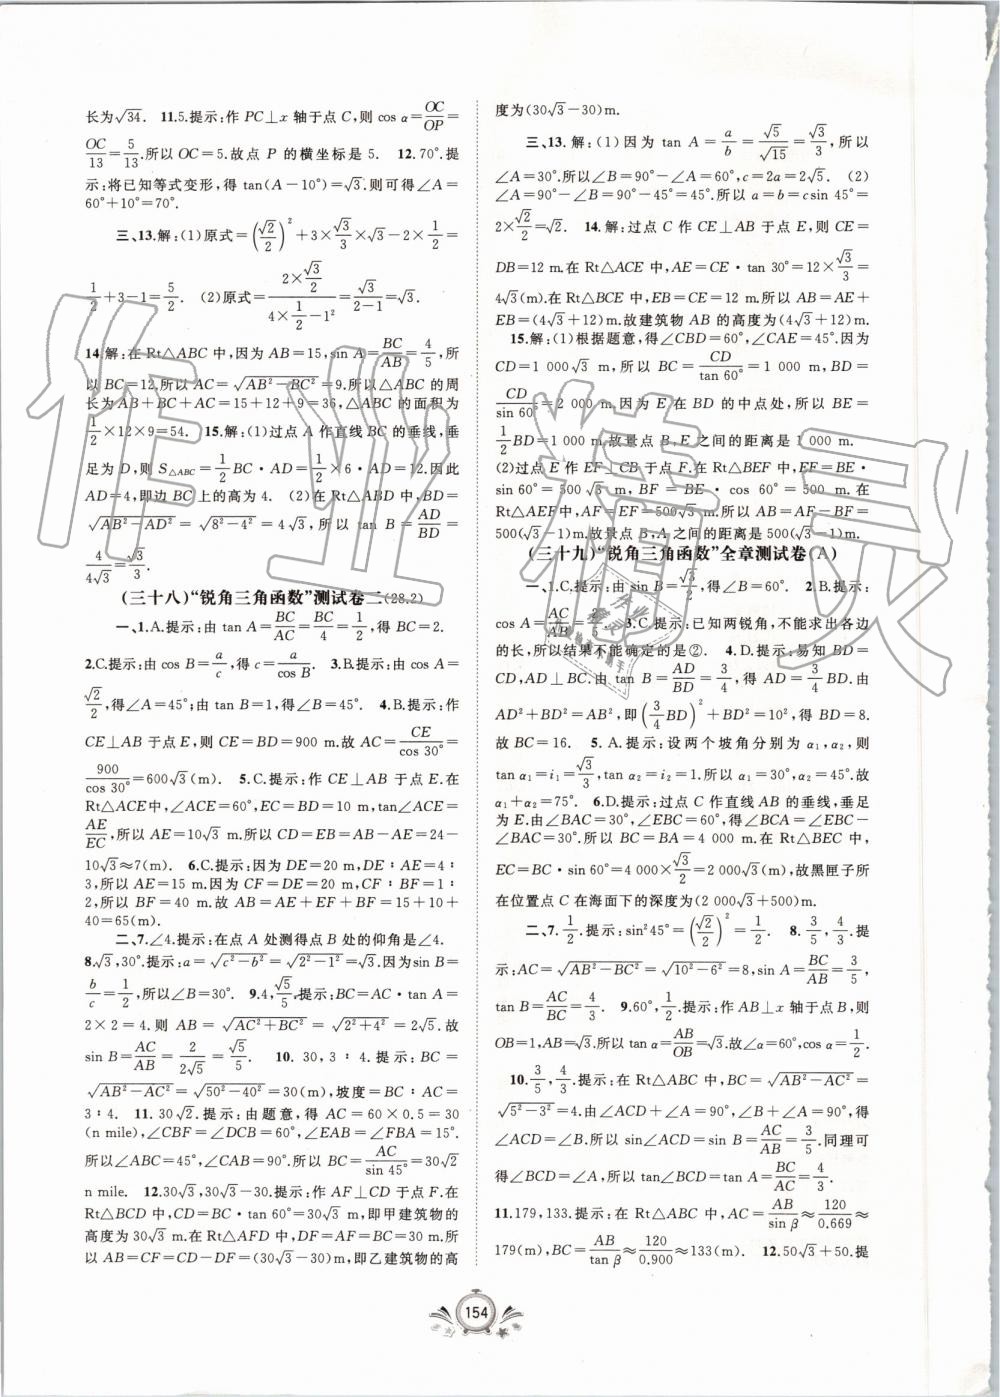 长为√34.　11.5.提示:作 PC⊥x 轴于点 C,则 cos α=OC/OP=
OC/13=5/13.所以 OC=5.故点 P 的横坐标是 5.　12.70°.提
示:将已知等式变形,得 tan(A-10°)=√3.则可得∠A=
60°+10°=70°.
三、13.解:(1)原式=(√2/2)²+3×√3/3×√3-2×1/2=
1/2+3-1=5/2.　(2)原式=(2×√3/2)/(4×1/2-1²)=√3/(2-1)=√3.
14.解:在 Rt△ABC 中,因为 AB=15,sin A=BC/AB=4/5,所
以 BC=12.所以 AC=√(AB²-BC²)=9.所以△ABC 的周
长为 AB+BC+AC=15+12+9=36,△ABC 的面积为
1/2×12×9=54.　15.解:(1)过点 A 作直线 BC 的垂线,垂
足为 D,则 S△ABC=1/2BC·AD=1/2×6·AD=12.因此
AD=4,即边 BC 上的高为 4.　(2)在 Rt△ABD 中,BD=
√(AB²-AD²)=√(8²-4²)=4√3,所以 tan B=AD/BD=
4/(4√3)=√3/3.
(三十八)“锐角三角函数”测试卷二(28.2)
一、1.A.提示:由 tan A=BC/AC=BC/4=1/2,得 BC=2.
2.C.提示:由 cos B=a/c,得 c=a/cos B.　3.B.提示:由 cos A=
√2/2,得∠A=45°;由 tan B=1,得∠B=45°.　4.B.提示:作
CE⊥AB 于点 E,则 CE=BD=900 m.故 AC=CE/cos 30°=
900/cos 30°=600√3(m).　5.C.提示:作 CE⊥AB 于点 E.在
Rt△ACE中,∠ACE=60°,EC=BD=10 m,tan∠ACE=
AE/EC,所以 AE=10√3 m.所以 CD=EB=AB-AE=24-
10√3≈7(m).　6.C.提示:因为 DE=20 m,DE∶AE=4∶
3,所以 AE=15 m.因为 CF=DE=20 m,CF∶BF=1∶2,
所以 BF=40 m.故 AB=AE+EF+BF=15+10+
40=65(m).
二、7.∠4.提示:在点 A 处测得点 B 处的仰角是∠4.
8.√3,30°.提示:a=√(c²-b²)=√(2²-1²)=√3.因为sin B=
b/c=1/2,所以∠B=30°.　9.4,√5/5.提示:BC=AC·tan A=
2×2=4.则 AB=√(AC²+BC²)=√(2²+4²)=2√5.故
sin B=AC/AB=2/(2√5)=√5/5.　10. 30,3∶4.提示:BC=
√(AB²-AC²)=√(50²-40²)=30(m),坡度=BC∶AC=
3∶4.　11. 30√2.提示:由题意,得 AC=60×0.5=30
(n mile),∠CBF=∠DCB=60°,∠ABF=∠FBA=15°.
所以∠ABC=45°,∠CAB=90°.所以 BC=AC/sin 45°=30√2
n mile.　12.30√3,30√3-30.提示:作 AF⊥CD 于点 F.在
Rt△BCD 中,CD=BC·tan 60°=30√3 m,即甲建筑物的
高度为 30√3 m.在 Rt△AFD 中,DF=AF=BC=30 m.所
以 AB=CF=CD-DF=(30√3-30)m,即乙建筑物的高
度为(30√3-30)m.
三、13.解:(1)因为 tan A=a/b=√5/√15=√3/3,所以
∠A=30°.所以∠B=90°-∠A=60°,c=2a=2√5.　(2)
∠A=90°-∠B=90°-45°=45°.所以 a=b=csin 45°=
2×√2/2=√2.　14.解:过点 C 作 CE⊥AB 于点 E,则 CE=
DB=12 m.在 Rt△ACE 中,AE=CE·tan 30°=12×√3/3=
4√3(m).在 Rt△BCE 中,EB=CE=12 m.所以 AB=AE+
EB=(4√3+12)m.故建筑物 AB 的高度为(4√3+12)m.
15.解:(1)根据题意,得∠CBD=60°,∠CAE=45°.因为
CD=1 000√3 m,所以 BC=CD/tan 60°=1 000 m,BD=
CD/sin 60°=2 000 m.因为 E 在 BD 的中点处,所以 BE=
1/2BD=1 000 m.故景点 B,E 之间的距离是 1 000 m.
(2)过点 E 作 EF⊥CB 于点 F.在 Rt△BEF 中,EF=BE·
sin 60°=500√3 m,BF=BE·cos 60°=500 m.在
Rt△AEF中,AF=EF=500√3 m.所以 AB=AF-BF=
500(√3-1)m.故景点 B,A 之间的距离是 500(√3-1)m.
(三十九)“锐角三角函数”全章测试卷(A)
一、1.C.提示:由 sin B=√3/2,得∠B=60°.　2.B.提示:
cos A=AC/AB=2/5.　3.C.提示:已知两锐角,不能求出各边
的长,所以结果不能确定的是②.　4.D.提示:易知 BD=
CD,AD⊥BC.因为 tan B=AD/BD=3/4,得 AD=3/4BD.由
AD²+BD²=AB²,即(3/4BD)²+BD²=10²,得 BD=8.
故 BC=16.　5. A.提示:设两个坡角分别为 α₁,α₂,则
tan α₁=i₁=√3/3,tan α₂=i₂=1.所以 α₁=30°,α₂=45°.故
α₁+α₂=75°.　6.D.提示:过点 C 作直线 AB 的垂线,垂足
为 E.由∠BAC=30°,∠EBC=60°,得∠BCA=∠EBC-
∠BAC=30°.所以 BC=BA=4 000 m.在 Rt△BEC 中,
EC=BC·sin 60°=4 000×√3/2=2 000√3(m).故黑匣子所
在位置点 C 在海面下的深度为(2 000√3+500)m.
二、7.1/2.提示:sin²45°=(√2/2)²=1/2.　8.3/5,4/3.提
示:AC=√(AB²-BC²)=√(10²-6²)=8,sin A=BC/AB=3/5,
tan B=AC/BC=4/3.　9.60°,1/2.提示:作 AB⊥x 轴于点 B,则
OB=1,AB=√3.所以 tan α=AB/OB=√3.故∠α=60°,cos α=1/2.
10.3/5,4/3.提示:在 Rt△ABC 中,BC=√(AB²-AC²)=
√(5²-3²)=4.由∠ACD+∠A=90°,∠B+∠A=90°,得
∠ACD=∠B.所以 sin∠ACD=sin B=AC/AB=3/5.同理可
得∠BCD=∠A,所以 tan∠BCD=tan A=BC/AC=4/3.
11.179,133.提示:在 Rt△ABC 中,AC=AB/sin β≈120/0.669≈
179(m),BC=AB/tan β≈120/0.900≈133(m).　12.50√3+50.提
154
作业精灵